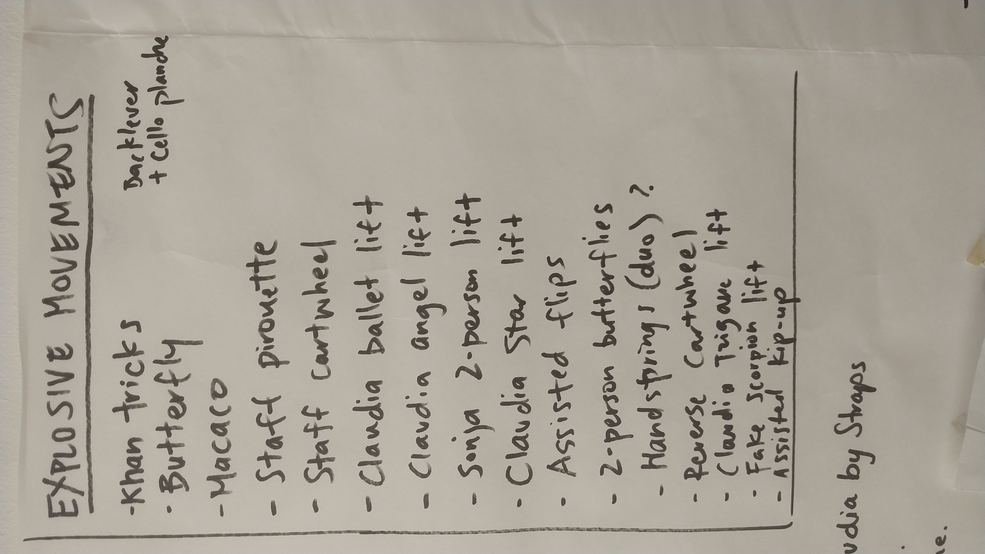 EXPLOSIVE MOVEMENTS
- Khan tricks
- Butterfly
- Macaco
Backlever
+ Cello planche
- Staff pirouette
- Staff cartwheel
- Claudia ballet lift
- Claudia angel lift
- Sonja 2-person lift
- Claudia Star lift
- Assisted flips
- 2-person butterflies
- Handsprings (duo) ?
- Reverse Cartwheel
- Claudia Trigane lift
- Fake scorpion lift
- Assisted kip-up
udia by Straps